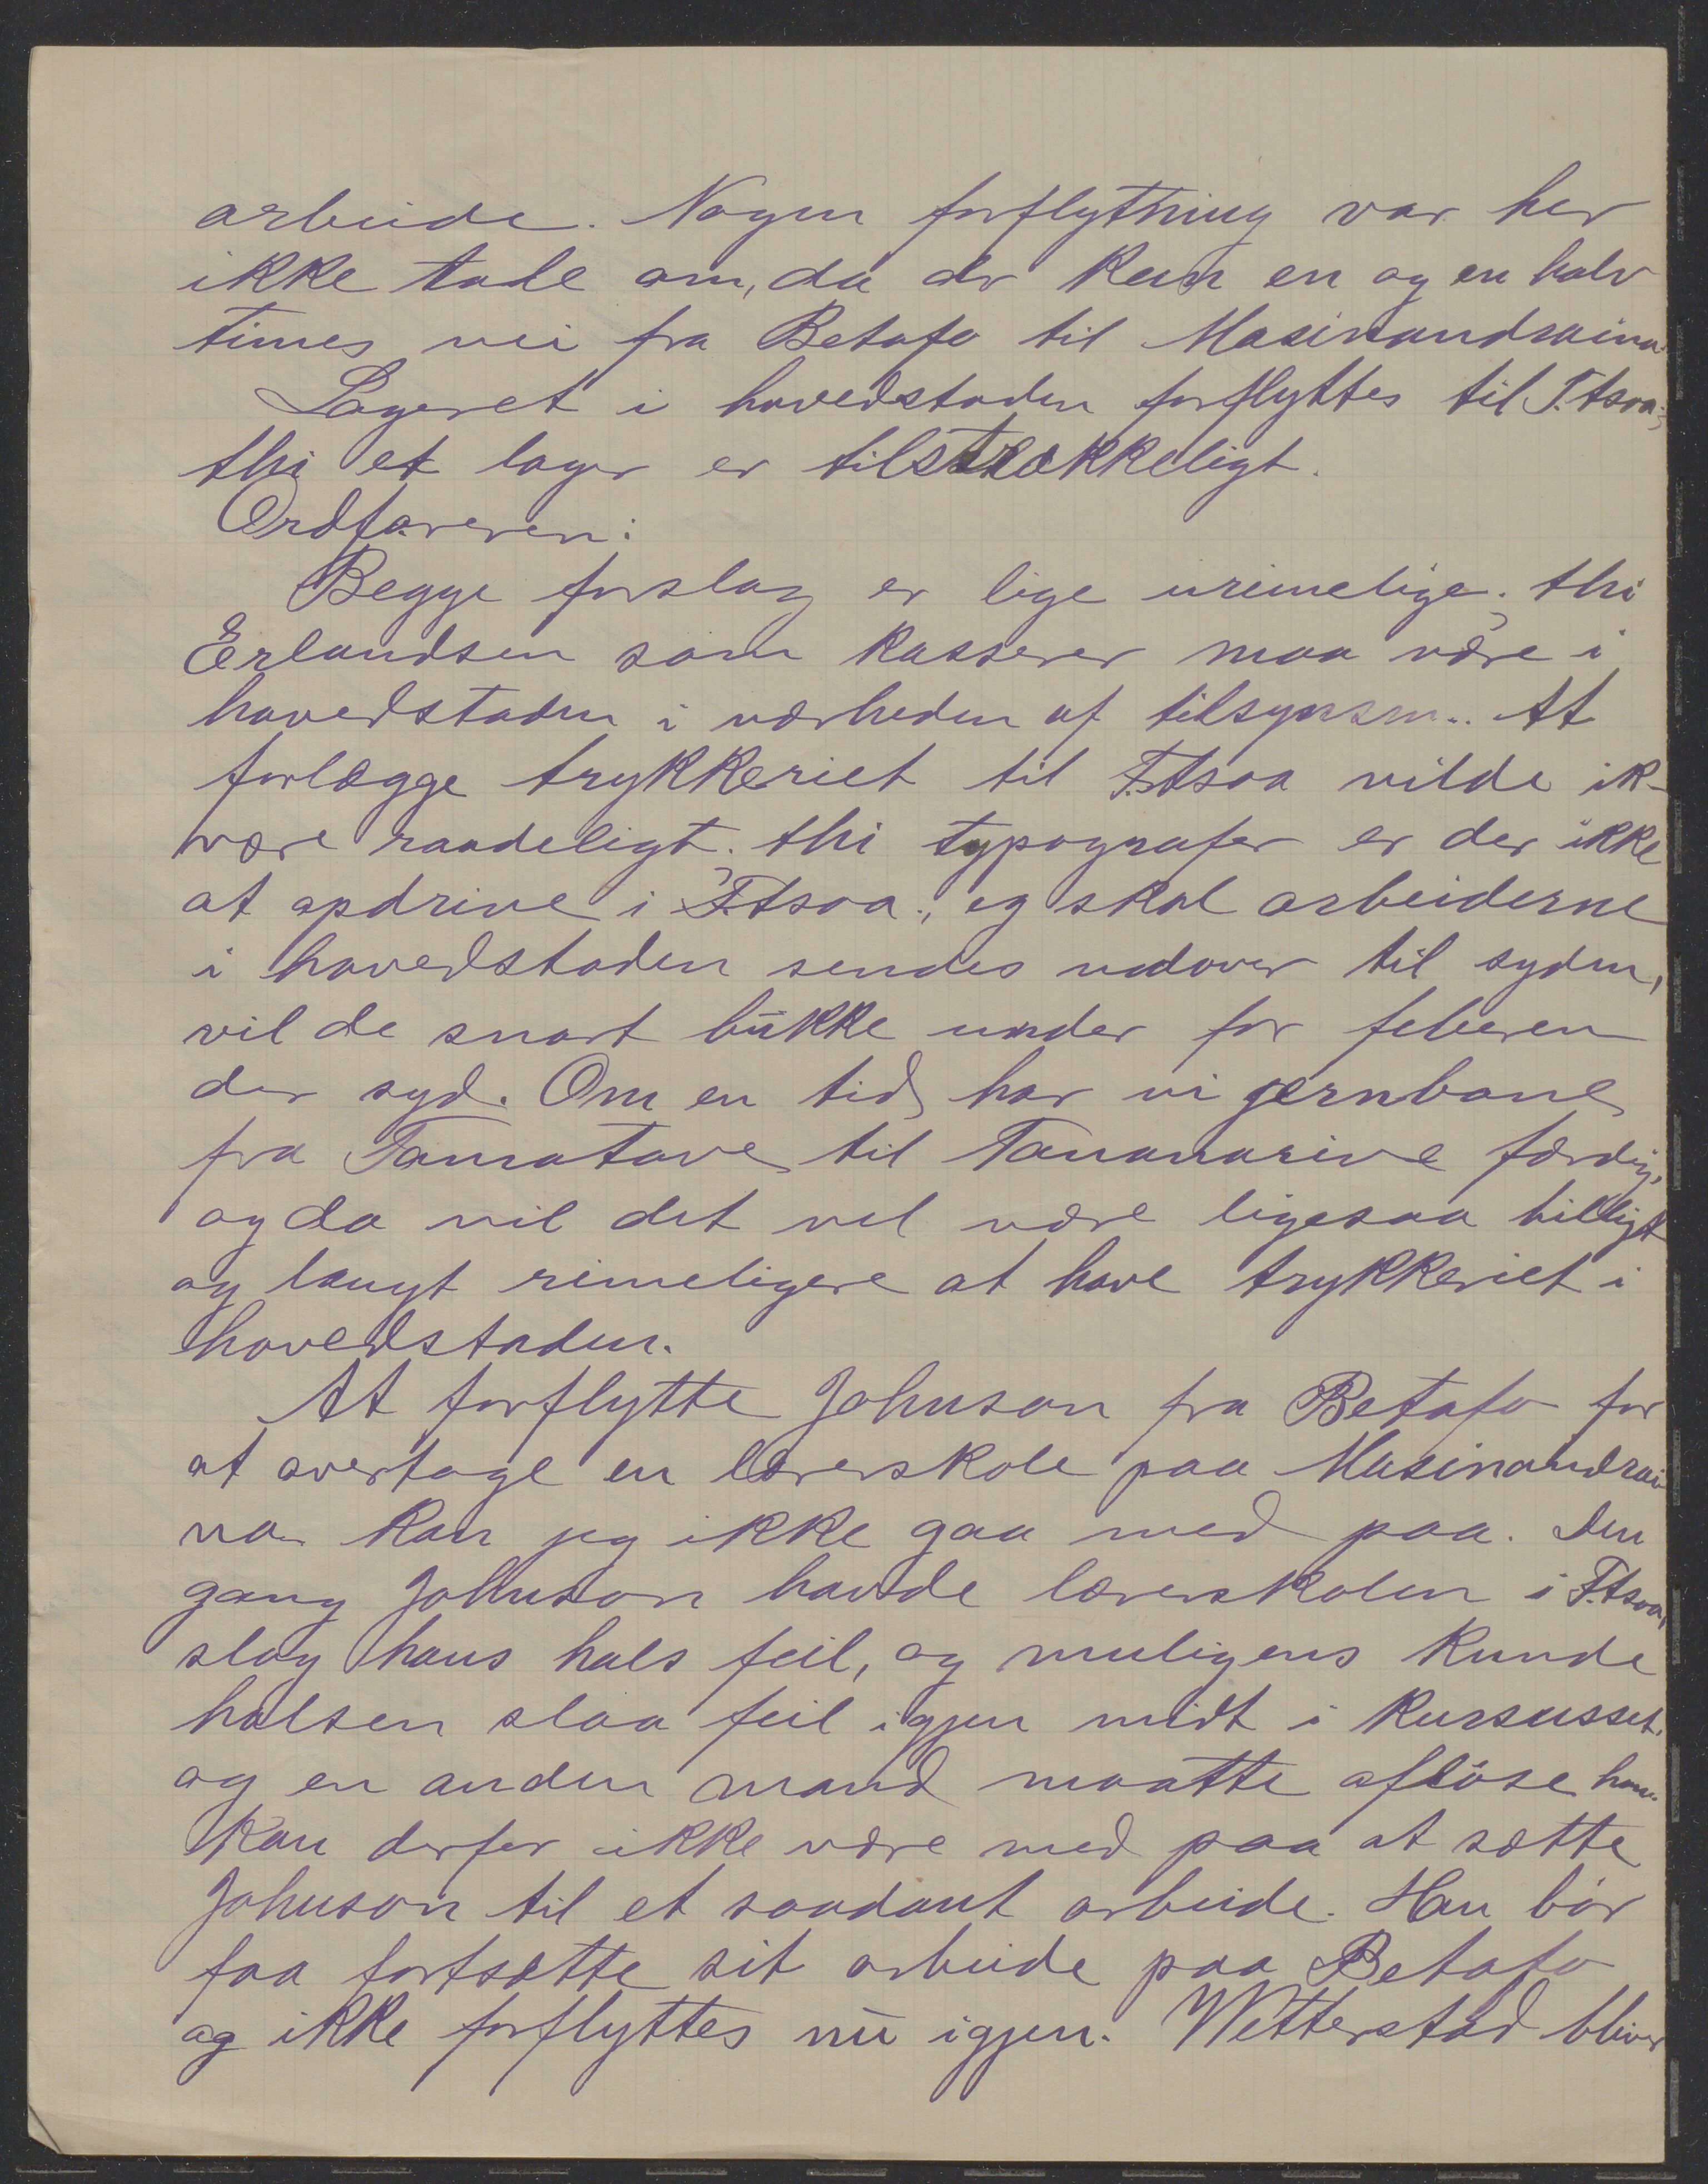 arbeide. Nogen forflytning var her
ikke tale om, da der kun en og en halv
times vei fra Betafo til Masinandraina.
Lageret i hovedstaden forflyttes til F.tsoa;
thi et lager er tilstrækkeligt.
Ordføreren:
Begge forslag er lige urimelige; thi
Erlandsen som kasserer maa være i
hovedstaden i nærheden af tilsynsm.. At
forlægge trykkeriet til F.tsoa vilde ik-
være raadeligt; thi typografer er der ikke
at opdrive i F.tsoa; og skal arbeiderne
i hovedstaden sendes nedover til syden,
vil de snart bukke under for feberen
der syd. Om en tid har vi jernbane
fra Tamatave til Tananarive færdig,
og da vil det vel være ligesaa billigt
og langt rimeligere at have trykkeriet i
hovedstaden.
At forflytte Johnson fra Betafo for
at overtage en lærerskole paa Masinandrai
na kan jeg ikke gaa med paa. Den
gang Johnson havde lærerskolen i F.tsoa,
slog hans hals feil, og muligens kunde
halsen slaa feil igjen midt i kursusset,
og en anden mand maatte afløse ham.
Kan derfor ikke være med paa at sætte
Johnson til et saadant arbeide. Han bør
faa fortsætte sit arbeide paa Betafo
og ikke forflyttes nu igjen. Wetterstad bliver